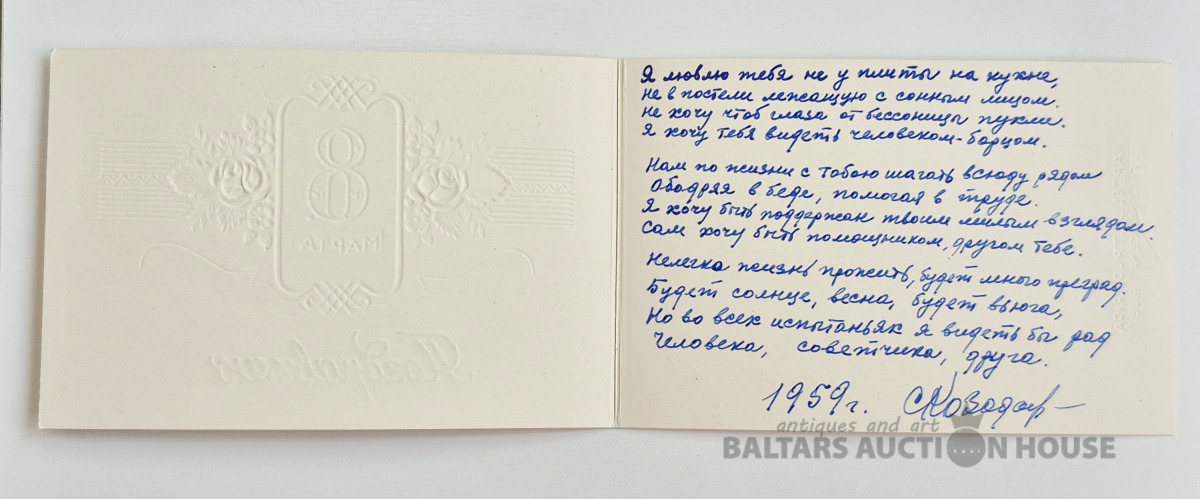 8
МАРТА
Поздравляю
Я люблю тебя не у плиты на кухне,
не в постели лежащую с сонным лицом.
не хочу чтоб глаза от бессоницы пухли.
Я хочу тебя видеть человеком-борцом.
Нам по жизни с тобою шагать всюду рядом
Ободряя в беде, помогая в труде.
Я хочу быть поддержан твоим милым взглядом.
Сам хочу быть помощником, другом тебе.
Нелегка жизнь прожить, будет много преград.
Будет солнце, весна, будет вьюга,
Но во всех испытаньях я видеть бы рад
Человека, советчика, друга.
1959г.
antiques and art
BALTARS AUCTION HOUSE